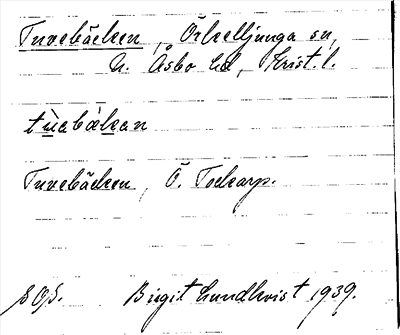 Tuvebäcken, Örkelljunga sn,
N. Åsbo hd, Krist. l.
tùabæ̀kan
Tuvebäcken, Ö. Tockarp.
SOS. Birgit Lundkvist 1939.